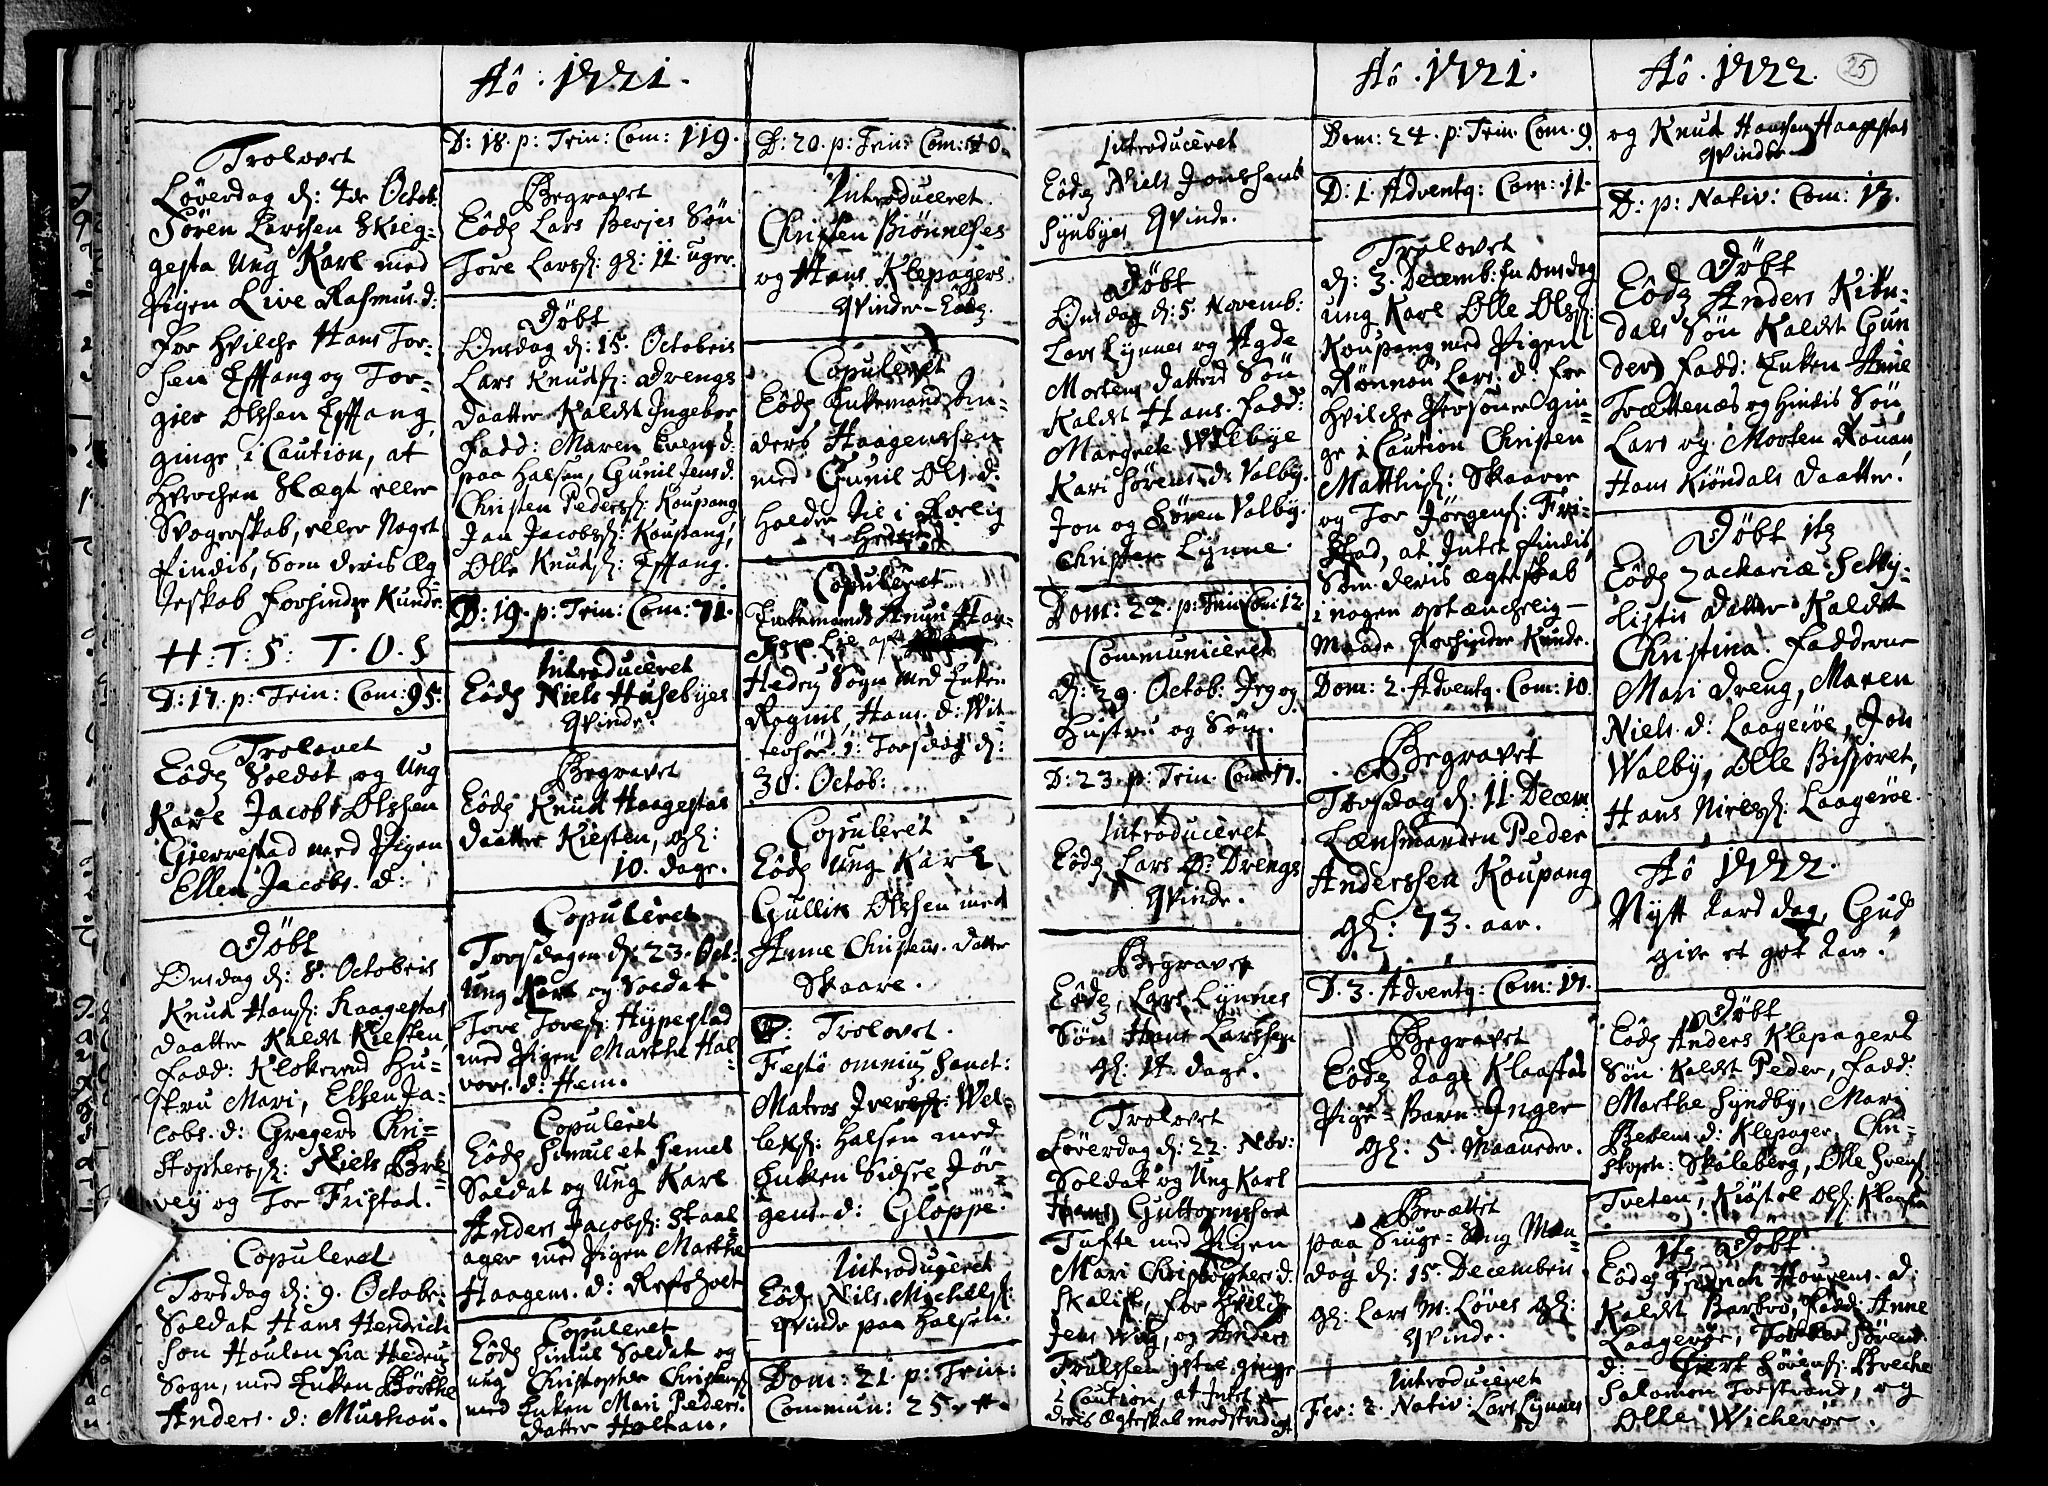 Aô: 1721.
Trolovet
Løverdag d: 4de Octob:
Sören Larssen Skieg-
gesta Ung Karl med
Pigen Live Rasmus. d:
for hvilche Hans Tor-
sen Effang og Tor-
gier Olssen Effang
ginge i Caution, at
hverchen Slægt eller
Svogerskab, eller Noget
findis, Som deris Æg
teskab forhindre Kunde.
H: T: S: T. O. S
D: 17. p: Trin: Com: 95.
Trolovet
Eôd Soldat og Ung
Karl Jacob Olssen
Gierrestad med Pigen
Ellen Jacobs. d:
Døbt
Onsdag d: 8. Octobris
Knud Hans: Haagestas
daatter Kaldt Kiesten,
fadd: Klokerens Hu-
stru Mari, Ellen Ja-
cobs. d: Gregers Chri-
stophers: Niels Bre-
vey og Tor Fristad.
Copuleret
Torsdag d: 9. Octobr:
Soldat Hans Hendrich
son Houlen fra Hedru
Sogn, med Enken Børthe
Anders. d: Murhou.
D: 18. p: Trin: Com: 119.
Begravet
Eôd Lars Berjes Søn
Tore Lars: gl: 11. uger.
Døbt
Onsdag d: 15. Octobris
Lars Knuds: drengs
daatter Kaldt Ingebor
fadd: Maren Evens d:
paa Halsen, Gunil Jens d.
Christen Peders: Koupang
Jan Jacobs: Koupang,
Olle Knuds: Effang.
D: 19. p: Trin: Com: 71.
Introduceret
Eôd Niels Husebyes
Qvinde.
Begravet
Eôd Knud Haagestas
daatter Kiesten, gl:
10. dage.
Copuleret
Torsdagen d: 23. Oct:
Ung Karl og Soldat
Tore Tores: Hypestad
med Pigen Marthe Hal-
vors. d: Hem.
Copuleret
Eôd Simul et Semel
Soldat og Ung Karl
Anders Jacobs: Skaal
ager med Pigen Marthe
Haagens. d: Refsholt
Copuleret
Eôd Simul Soldat og
ung Christopher Christens
med Enken Mari Peders.
datter Holtan.
D: 20. p: Trin: Com: 40.
Introduceret
Christen Biønneses
og Hans Klepagers
Qvinder - Eôd.
Copuleret
Eôd Enkemand An-
ders Haagenssen
med Gunil Ols. d:
holder til i Farlig
Copuleret
Enkemand Knud Haa-
Hedru Sogn med Enken
Ragnil Hans. d: Wit-
tersør. d: Torsdag d:
30: Octob:
Copuleret
Eôd Ung Karl
Gullik Olssen med
Anne Christens. datter
Skaare.
Trolovet.
Festo omnium Sanct:
Matros Ivers: Wel-
lex: Halsen med
Enken Sidsel Jør-
gens. d: Gloppe.
Introduceret
Eôd Nils Michels:
Qvinde paa Halsen.
Dom: 21. p: Trin:
Commun: 25.
Aô. 1721.
Introduceret
Eôd Niels Jonssens
Synbyes Qvinde.
Døbt
Onsdag d: 5. Novemb:
Lars Lynnes og Agde
Mortens datters Søn
Kaldt Hans. fadd:
Margrete Walbye
Kari Sørens d: Valby.
Jon og Søren Valby.
Christen Lynne.
Dom: 22. p: Trin Com: 12.
Communiceret
d: 29. Octob: Jeg og
Hustru og Søn.
D: 23. p: Trin. Com: 17.
Introduceret
Eôd Lars Drengs
Qvinde.
Begravet
Eôd, Lars Lynnes
Søn Hans Larssen
gl: 14. dage.
Trolovet
Løverdag d: 22. Nov:
Soldat og Ung Karl
Hans Guttormson
Tufte med Pigen
Mari Christophers d.
Skalist, for hvilche
Jens Wiig, og Anders
Trulssen ginge
i Caution, at Intet
deris ægteskab modstridigt
Dom: 24. p: Trin. Com. 9.
D: 1. Advent: Com: 11.
Trolovet
d: 3. Decemb: En Onsdag
ung Karl Olle Ols:
Koupang med Pigen
Rønnou Lars: d: for
hvilche Personer gin-
ge i Caution Christen
Matthis: Skaarer
og Tor Jørgens: Fri-
stad, at Intet findis,
Som deris ægteskab
i nogen optænchelig
Maade forhindre Kunde.
Dom: 2. Advent. Com: 10.
Begravet
Torsdag d: 11. Decem:
Lænsmanden Peder
Anderssen Koupang
gl: 73. aar.
D. 3. Advent: Com: 17.
Begravet
Eôd Aage Klaastad
Pige-Barn Inger
gl: 5. Maaneder.
Berættet
paa Siuge-Sæng Man-
dag d: 15. Decembris.
gl: Lars M: Løves gl:
Qvinde.
Introduceret
Fer: 2. Nativ: Lars Lynnes
Aô. 1722. 25
og Knud Hanssen Haagestas
Qvinder
D: p: Nativ: Com: 17.
Døbt
Eôd Anders Kibu-
dals Søn Kaldt Gun
der, fadd: Enken Anne
Trættenæs og hindis Søn,
Lars og Morten Rouan,
Hans Kiøndals daatter.
Døbt it
Eôd Zachariæ Selby-
listis datter Kaldet
Christina. fadderne
Mari dreng, Maren
Niels. d: Laagerøe, Jon
Walby, Olle Bissjoret,
Hans Niels: Laagerøe.
Aô 1722.
Nytt Aars dag, Gud
give et got Aar.
Døbt
Eôd Anders Klepagers
Søn Kaldt Peder, fadd:
Marthe Syndby, Mari
Berens. d: Klepager, Chri-
stoph: Skaleberg, Olle Svens
Tveten, Kiøstel Ols: Klaasta
It Døbt.
Eôd Frands Houvens. d.
Kaldt Barbro, fadd: Anne
Laagerøe, Sørens.
d: Giert Sørens: Breche
Salomon Torstrand, og
Olle Wicherøe.